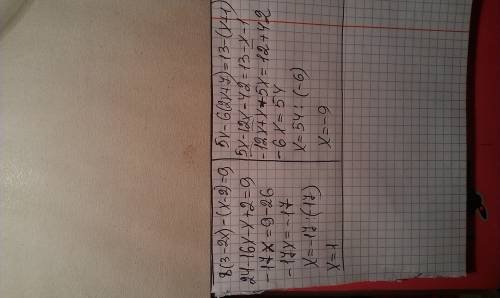 8(3-2x)-(x-2)=9
24-16x-x+2=9
-17x=9-26
-17x=-17
x=-17:(17)
x=1
5x-6(2x+7)=13-(x+1)
5x-12x-42=13-x-1
-12x+x+5x=12+42
-6x=54
x=54:(-6)
x=-9